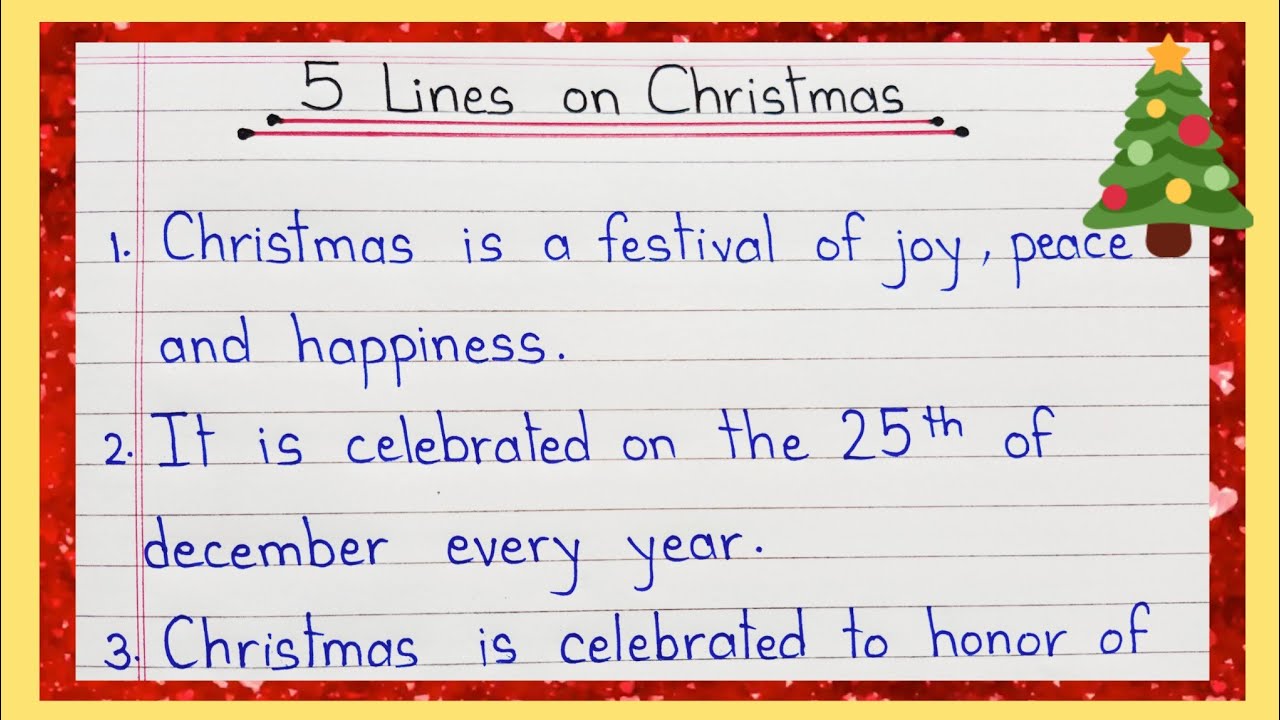 5 Lines on Christmas
1. Christmas is a festival of joy, peace
and happiness.
2. It is celebrated on the 25th of
december every year.
3. Christmas is celebrated to honor of